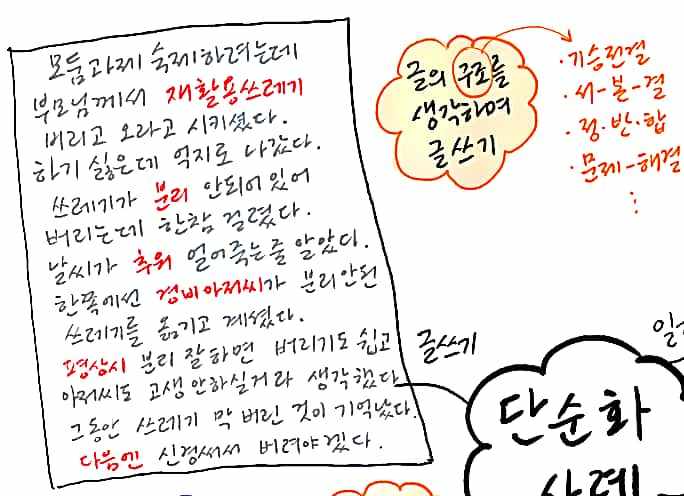 모둠과제 숙제하려는데
부모님께서 재활용쓰레기
버리고 오라고 시키셨다.
하기 싫은데 억지로 나갔다.
쓰레기가 분리 안되어 있어
버리는데 한참 걸렸다.
날씨가 추워 얼어죽는줄 알았다.
한쪽에선 경비아저씨가 분리안된
쓰레기를 옮기고 계셨다.
평상시 분리 잘하면 버리기도 쉽고
아저씨도 고생 안하실거라 생각했다
그동안 쓰레기 막 버린 것이 기억났다.
다음엔 신경써서 버려야겠다.
글의 구조를
생각하며
글쓰기
·기승전결
·서-본-결
·정·반·합
·문제-해결
글쓰기
단순화
사례